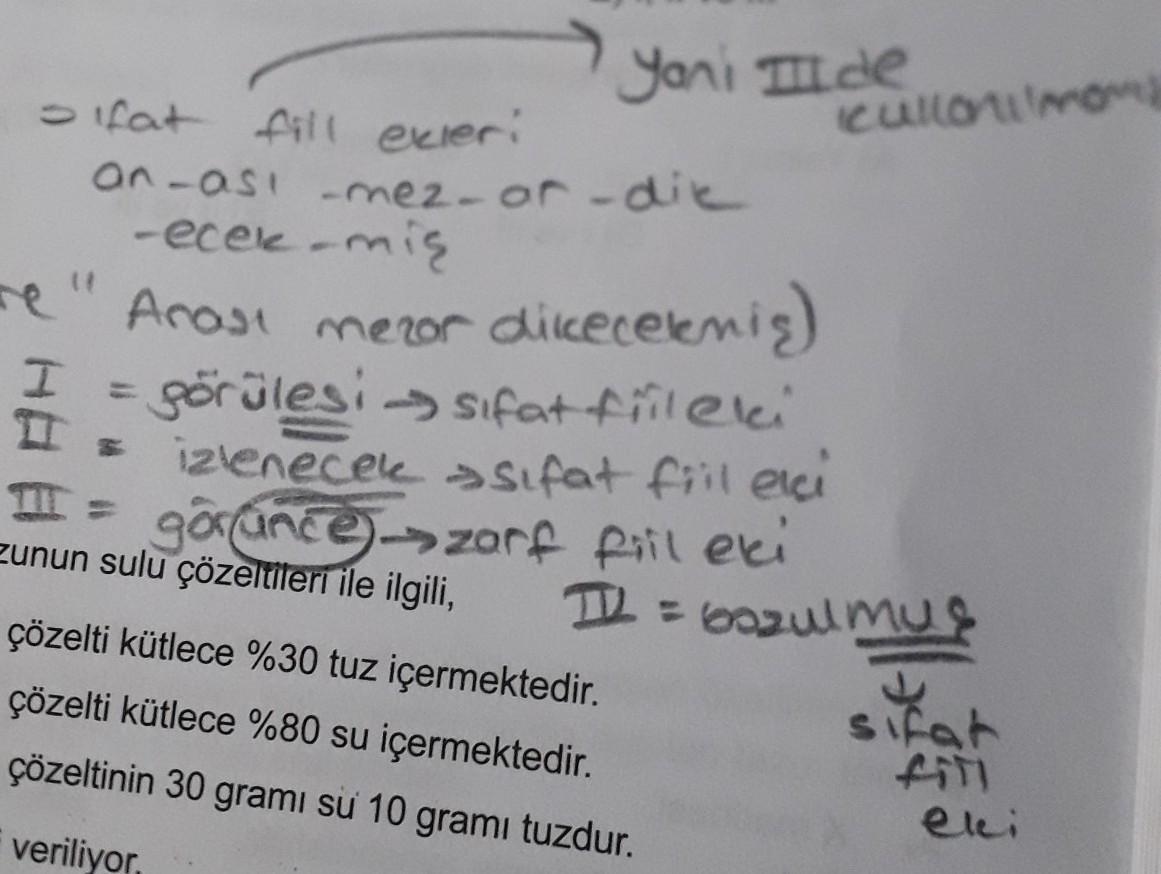 yani III de
kullanılmamış
sıfat fiil ekleri
an-ası -mez-ar-dik
-ecek-miş
"Anası mezar dikecekmiş)
I = görülesi → sıfat fiil eki
II = izlenecek → sıfat fiil eki
III = görünce → zarf fiil eki
zunun sulu çözeltileri ile ilgili,
IV = bozulmuş
çözelti kütlece %30 tuz içermektedir.
çözelti kütlece %80 su içermektedir.
sıfat
fiil
eki
çözeltinin 30 gramı su 10 gramı tuzdur.
veriliyor.